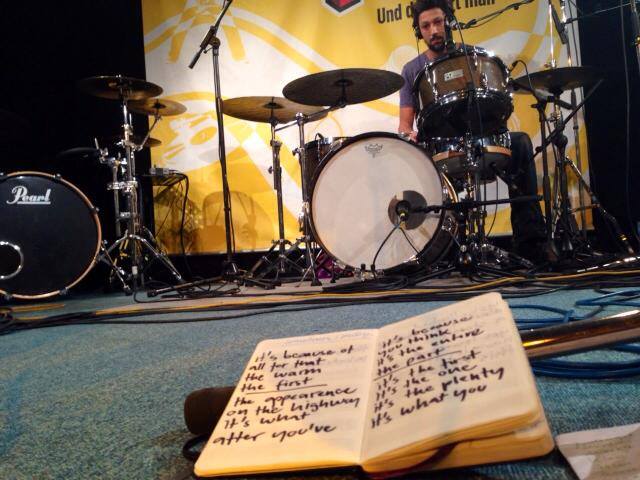 Und d
Pearl
it's because of
all for that
the warm
the first
the appearence
on the highway
it's what
after you've
it's because
you think
it's the entire
the part
it's the first
it's the one
it's the plenty
it's what you